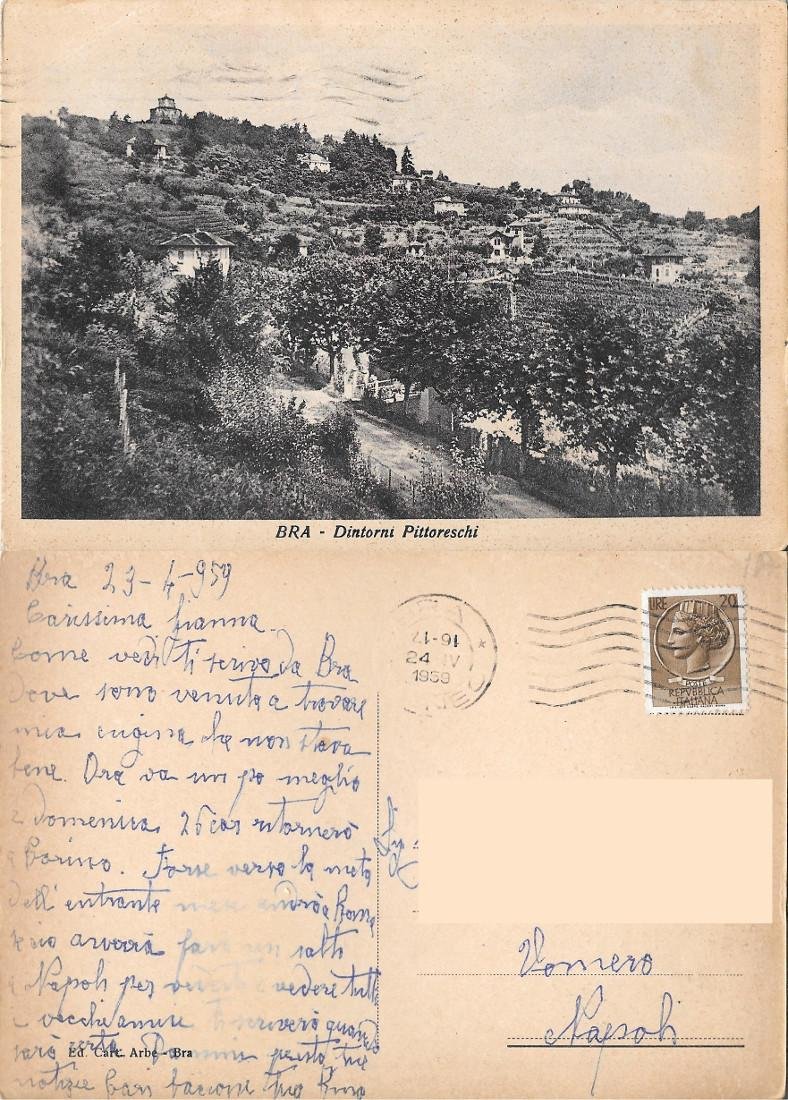 BRA - Dintorni Pittoreschi
Bra 23-4-959
Carissima Gianna
Come vedi ti scrivo da Bra
dove sono venuta a trovare
mia cugina che non stava
bene. Ora va un po meglio
e domenica 26 cos ritornerò
a Torino. Forse verso la metà
dell'entrante mese andrò a Roma
se ciò avverrà farò un salto
a Napoli per vederti e vedere tutti
e vecchi amici ti scriverò quando
sarò certa. Dammi presto tue
notizie Cari bacioni tuo
Ed. Cart. Arbe - Bra
BRA
21-91
24 IV
1959
CUNEO
LIRE 20
POSTE
REPVBBLICA
ITALIANA
Vomero
Napoli